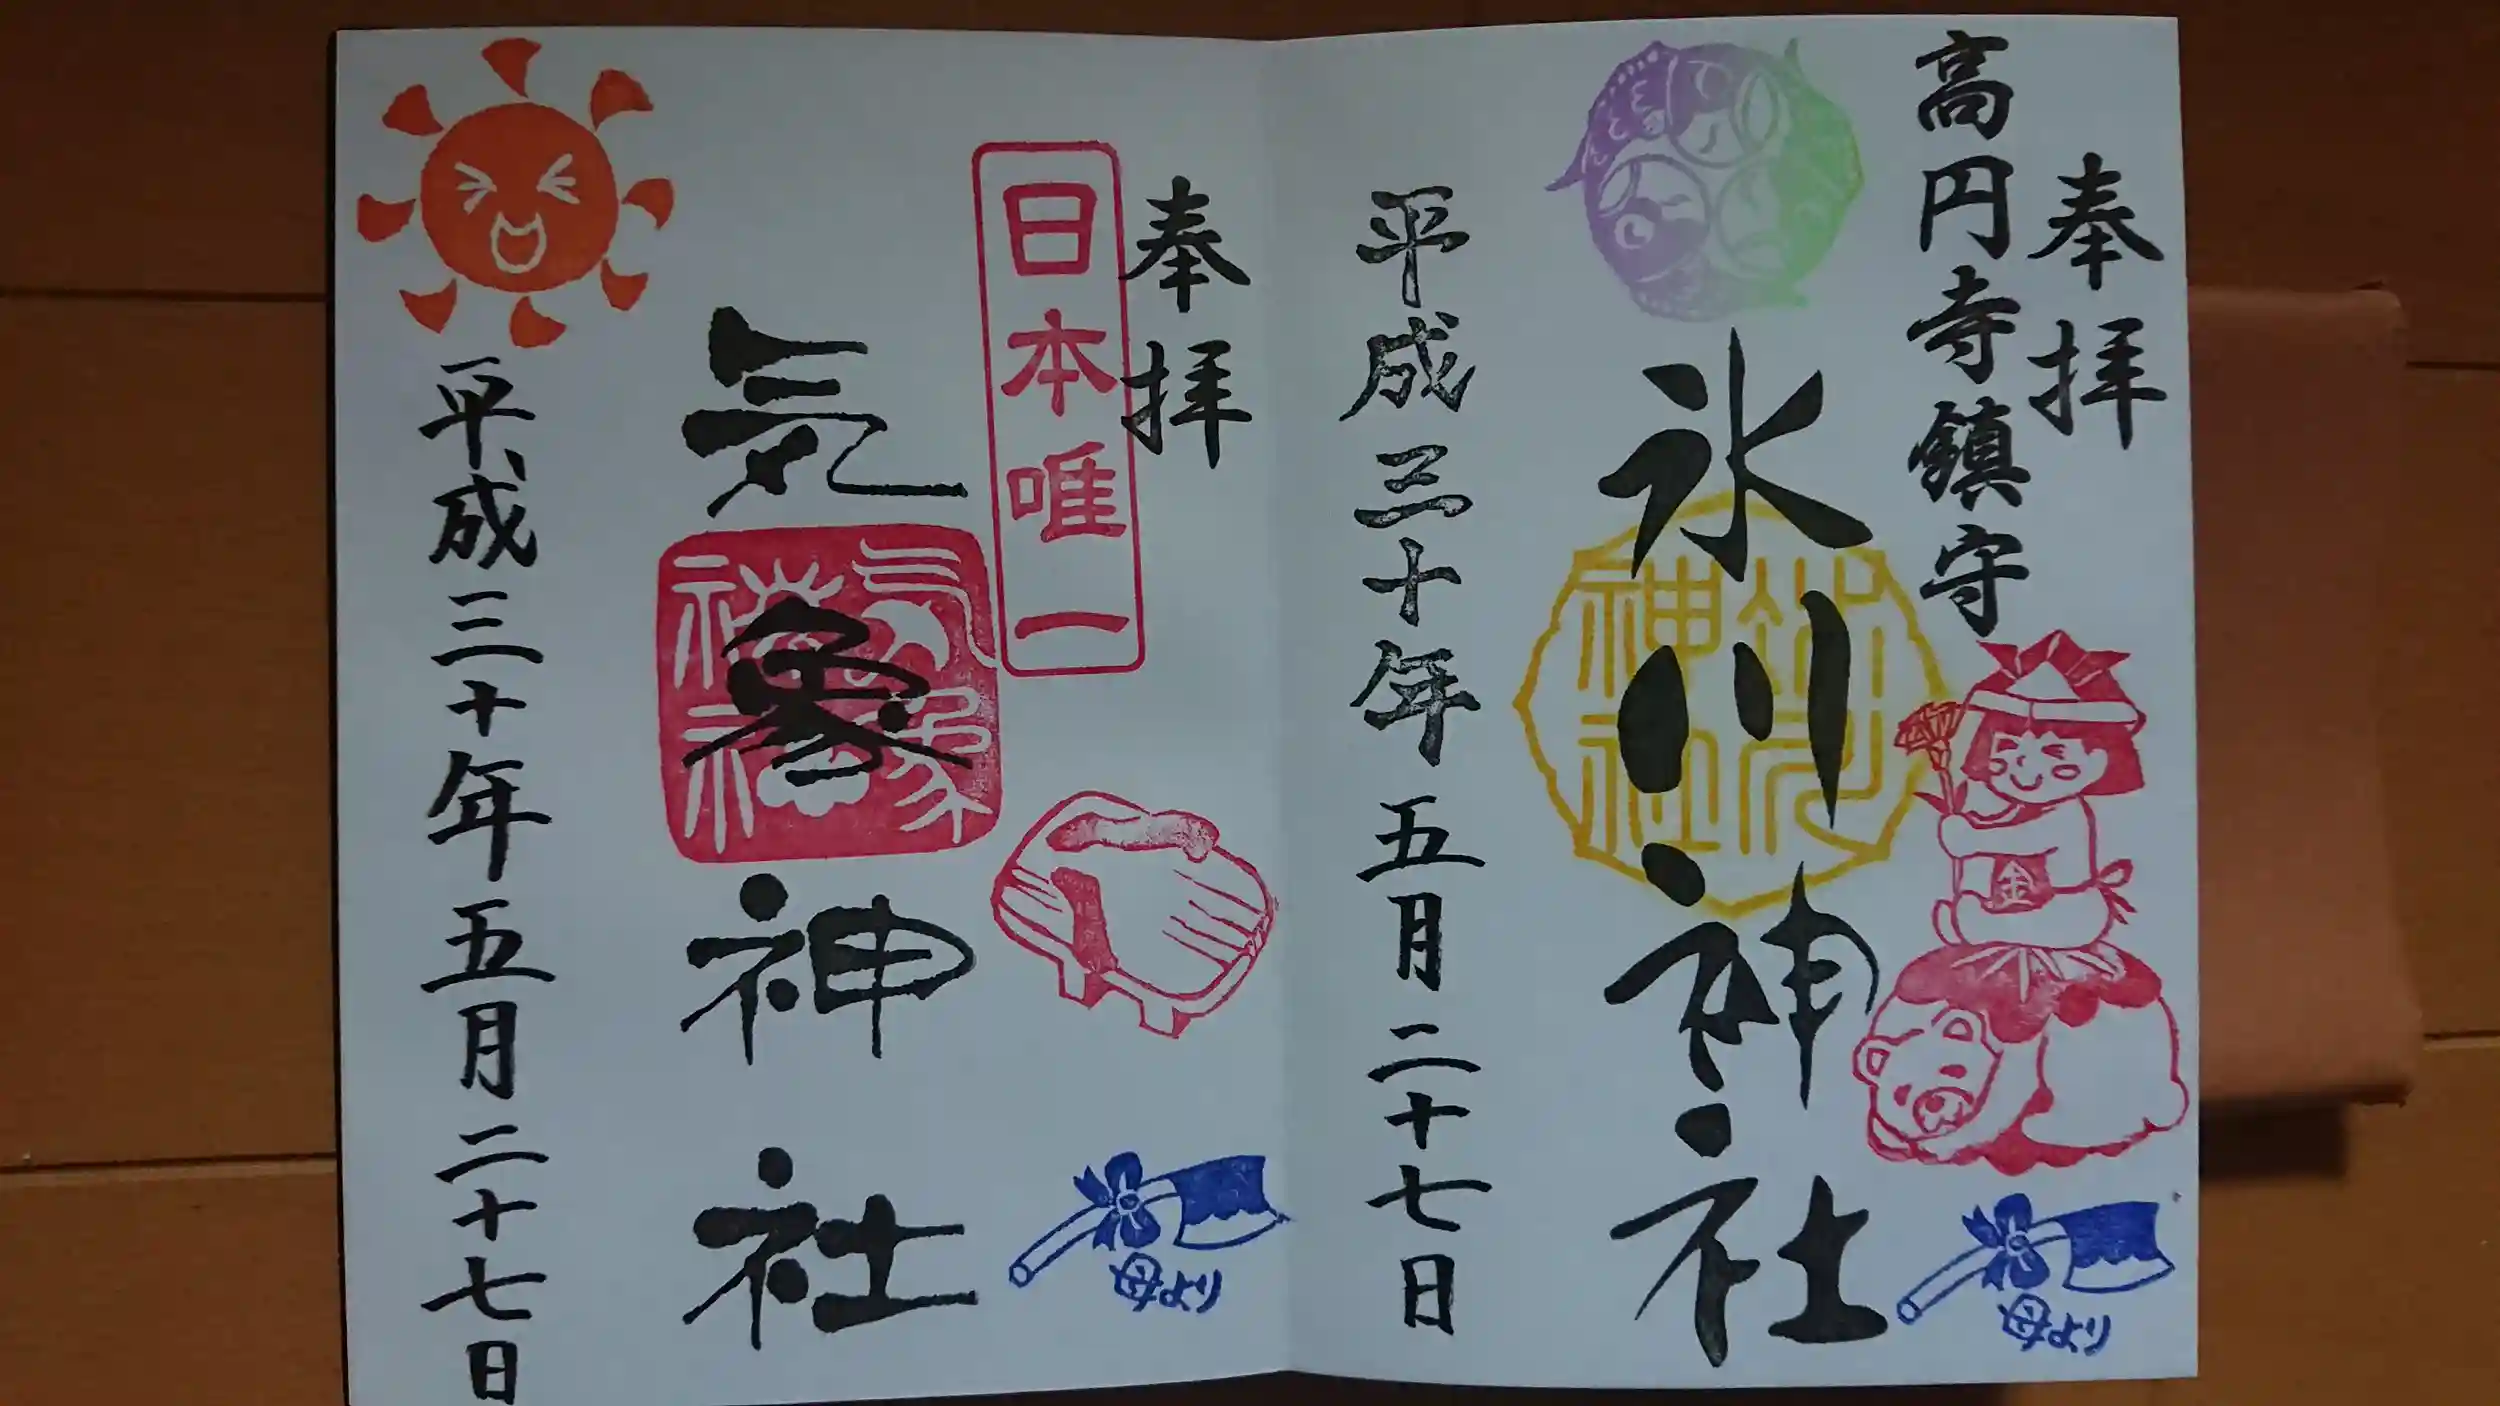 奉拝
高円寺鎮守
氷川神社
氷川神社
金
母より
平成三十年五月二十七日
奉拝
日本唯一
気象神社
気象神社
母より
平成三十年五月二十七日